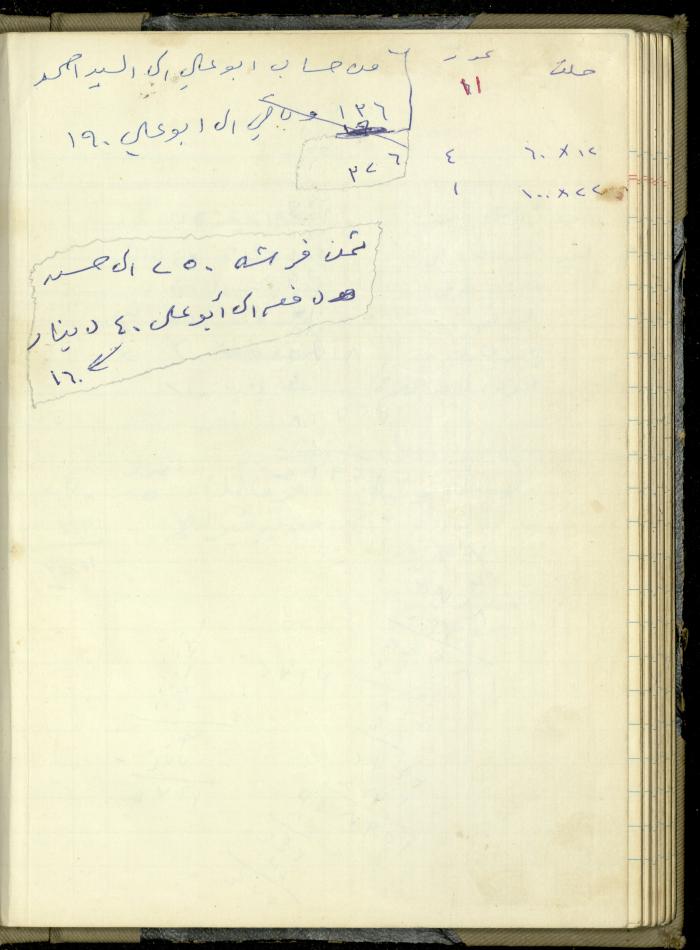 حلق عدد
١١
٦٠ × ١٢ ٤
١٠٠ × ٢٢ ١
من حساب ابو علي الى السيد احمد
١٣٦ وباقي الى ابو علي ١٩٠
٣٢٦
ثمن فرشه ٢٥٠ الى حسن
دفعه الى أبو علي ٤٠ دينار
١٦٠